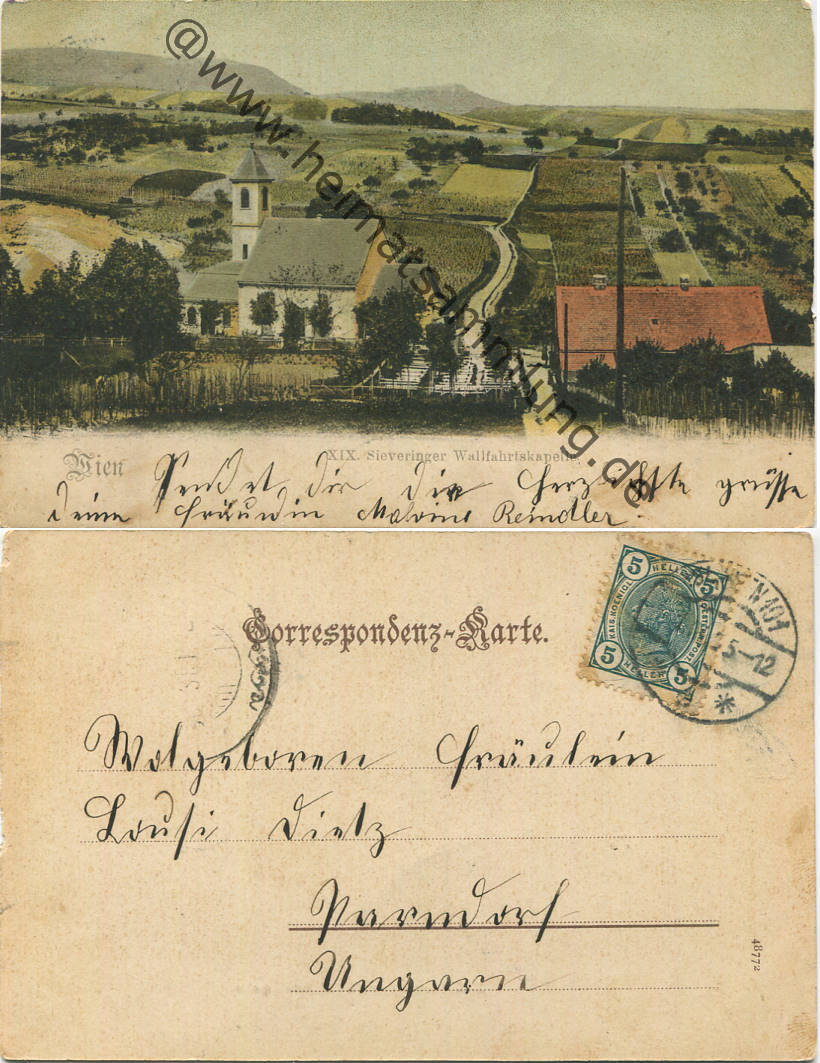 @www.heimatsammlung.de
Wien
XIX. Sieveringer Wallfahrtskapelle.
Sendet dir die herzlichste grüsse
deine fräundin Malvine Reindler.
Correspondenz-Karte.
5 HELLER 5
KAIS. KOENIGL. OESTERR. POST
5 HELLER 5
WIEN 101
5-12
*
Wolgeboren Fräulein
Lousi Dietz
Parndorf
Ungarn
48772